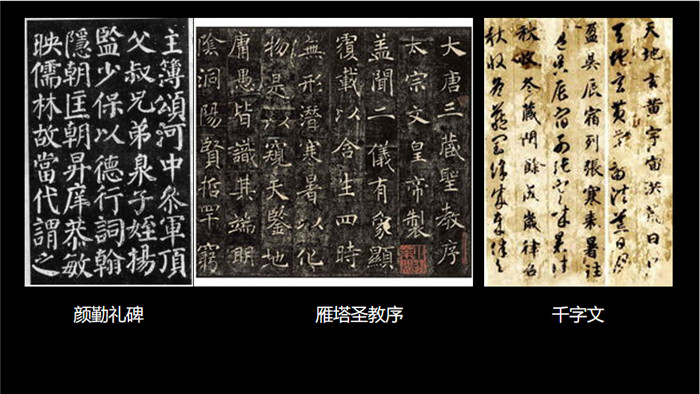 主簿頌河中叅軍頂
父叔兄弟泉子姪揚
監少保以德行詞翰
隱朝匡朝昇庠恭敏
映儒林故當代謂之
大唐三藏聖教序
太宗文皇帝製
盖聞二儀有象顯
覆載以含生四時
無形潛寒暑以化
物是以窺天鑒地
庸愚皆識其端明
陰洞陽賢哲罕窮
天地玄黃宇宙洪荒日月
天地玄黃宇宙洪荒日月
盈昃辰宿列張寒来暑往
盈昃辰宿列張寒来暑往
秋收冬藏閏餘成歲律吕
颜勤礼碑
雁塔圣教序
千字文